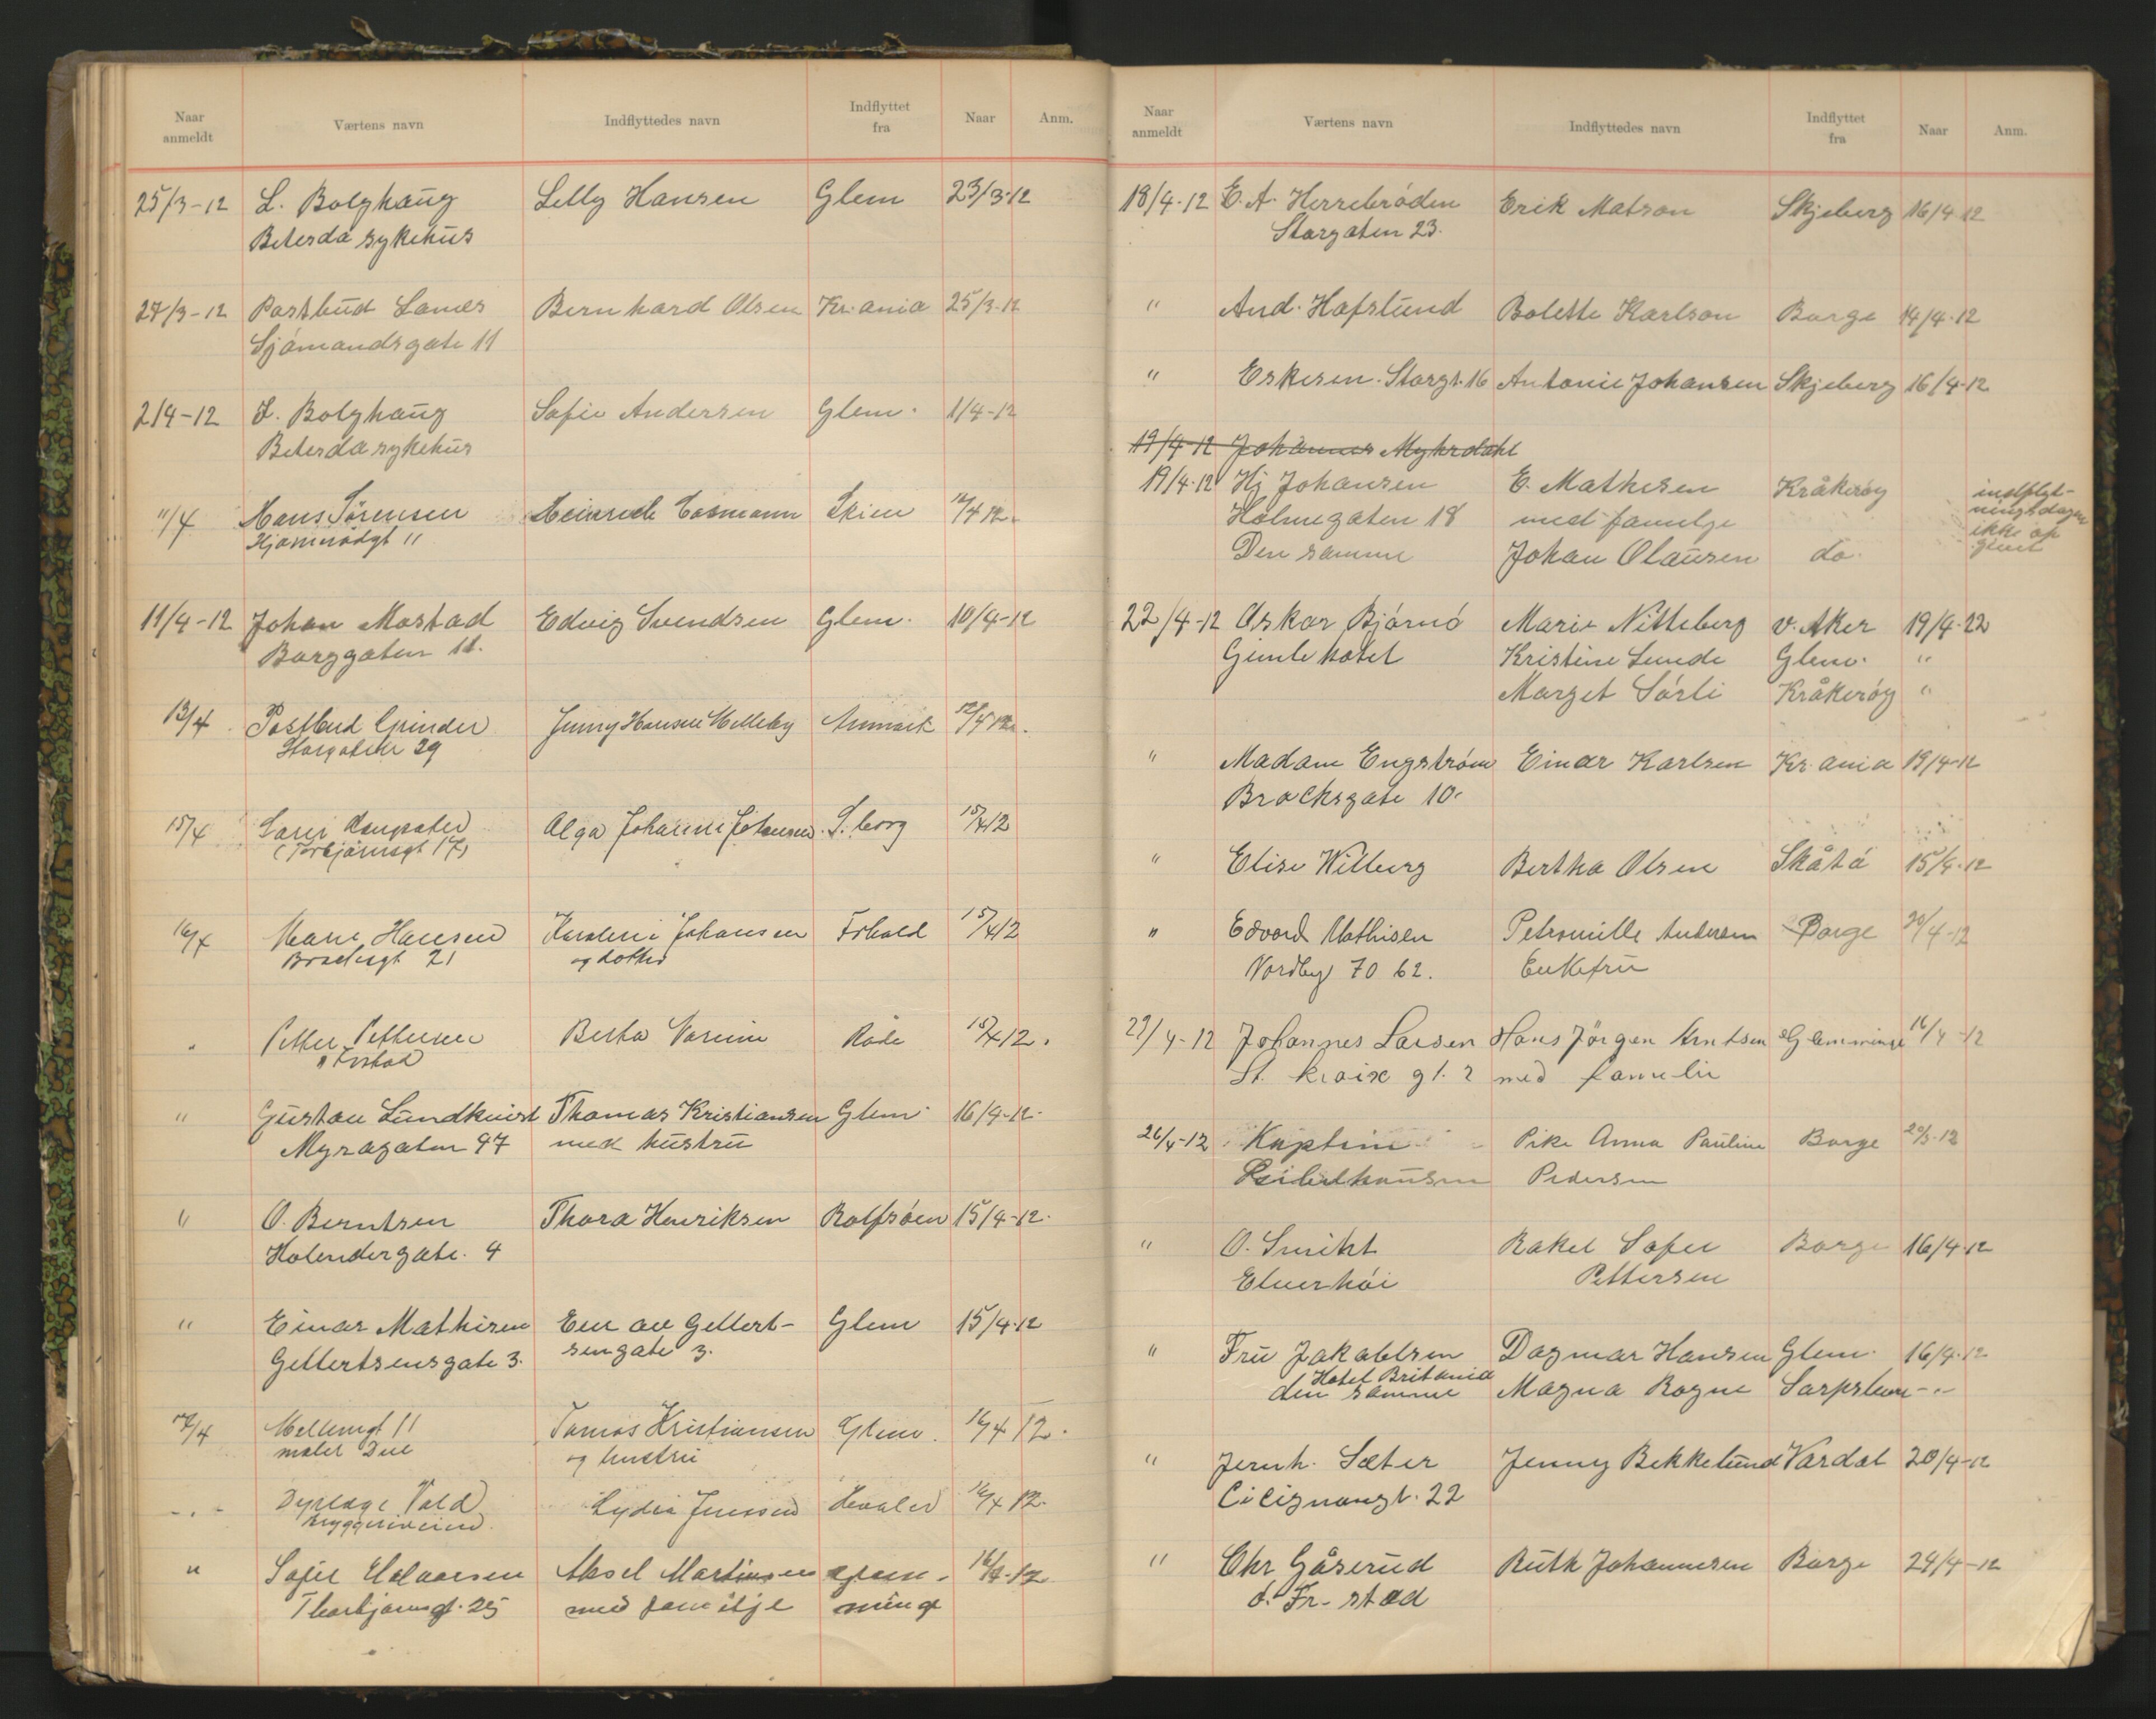 Naar anmeldt Værtens navn Indflyttedes navn Indflyttet fra Naar Anm.
25/3-12 L. Bolghaug Lelly Hansen Glem 23/3-12
Betesda sykehus
27/3-12 Postbud Lanes Bernhard Olsen Kr.ania 25/3-12
Sjømandsgate 11
2/4-12 L. Bolghaug Sofie Andersen Glem. 1/4-12
Betesda sykehus
11/4 Hans Sørensen Heinrich Skien 12/4 12.
11
11/4-12 Johan Mostad Edvig Svendsen Glem. 10/4-12
Borggaten 11.
13/4 Postbud Grinder Jenny Hansen Melleby 12/4 12.
Storgaten 29
15/4 Olga Johanne Johansen S.borg 15/4 12
(Torbjörnsgt 17)
16/4 Marie Hansen Johansen 15/4 12
21 og dotter
" Petter Pettersen Berta Råde 15/4 12.
" Gustav Lundkvist Thomas Kristiansen Glem. 16/4-12.
Myragaten 47 med hustru
" O. Berntsen Thora Henriksen Rolfsöen 15/4-12.
Holendergate. 4
" Einar Mathisen Eier av Gellert- Glem 15/4-12
Gellertsensgate 3. sengate 3.
17/4 Mellemgt 11 Tomas Kristiansen Glem. 16/4 12.
maler Due og hustru
- " - Dyrlæge Vold Lydia Jenssen Hvaler 16/4 12.
Bryggeriveien
" Sofie Halvorsen Aksel Martinsen Glem- 16/4-12
Thorbjörnsgt. 25 med familje minge
Naar anmeldt Værtens navn Indflyttedes navn Indflyttet fra Naar Anm.
18/4-12 E. A. Herrebröden Erik Matson Skjeberg 16/4-12
Storgaten 23.
" And. Hafslund Bolette Karlson Borge 14/4-12
" Eskesen. Storgt. 16 Antonie Johansen Skjeberg 16/4-12
19/4-12 Johannes Mykrdahl
19/4-12 Hj Johansen E. Mathesen Kråkeröy indflyt-
Holmegaten 18 med familje ningsdagen
Den samme Johan Olausen do. ikke op
givet
22/4-12 Oskar Björnö Marie Nitteberg v. Aker 19/4-22
Gimle hotel Kristine Lunde Glem. "
Marget Sörli Kråkeröy "
" Madam Engström Einar Karlsen Kr.ania 19/4-12
Brocksgate 10.
" Elise Wilberg Bertha Olsen Skåtö 15/4-12
" Edvard Mathisen Petronille Andersen Borge 20/4-12
Nordby 70 62. Enkefru
23/4-12 Johannes Larsen Hans Jörgen Arntsen Glemminge 16/4-12
St. Kroix gt. 2 med familie
26/4-12 Kaptein Pike Anna Pauline Borge 20/3-12
Pedersen
" O. Smidt Rakel Sofie Borge 16/4-12
Elverhöi Pettersen
" Fru Jakobbsen Dagmar Hansen Glem. 16/4-12
Hotel Britania
den samme Magna Rogne -"-
" Jernh. Sæter Jenny Bekkelund Vardal 20/4-12
Cicignongt. 22
" Chr Gåserud Ruth Johannesen Borge 24/4-12
ö. Fr.stad